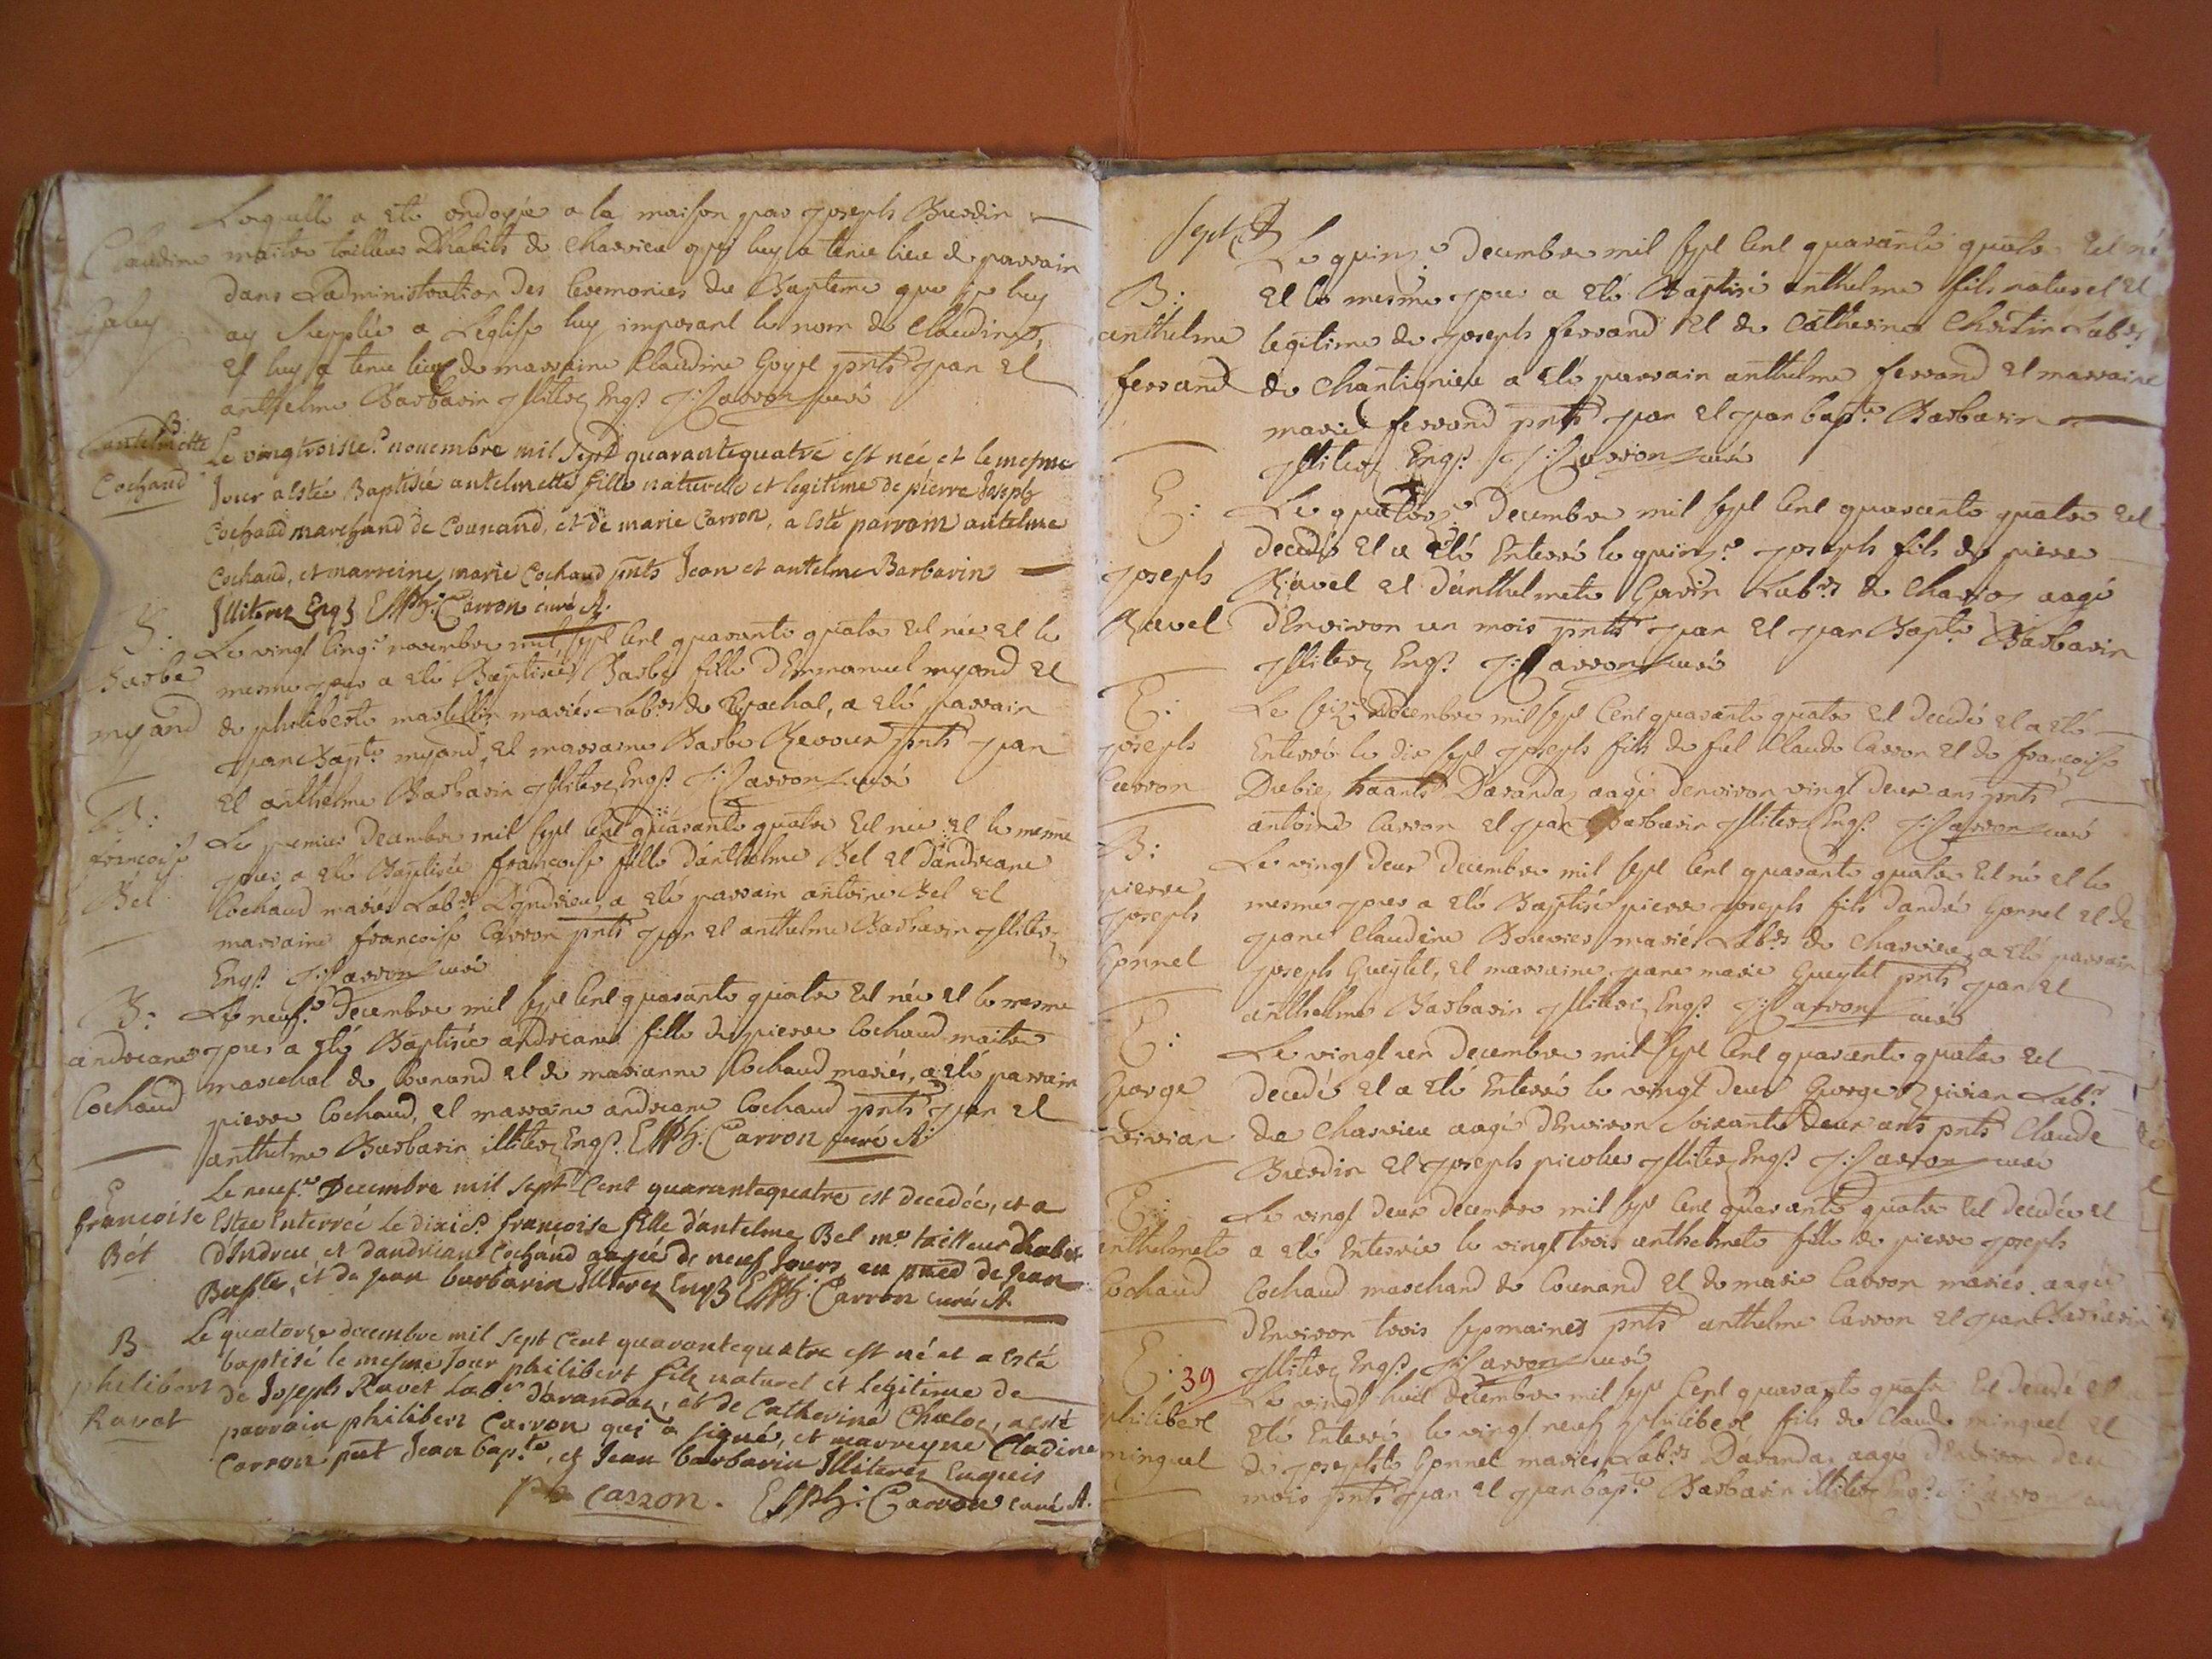 Laquelle a eté ondoyée a la maison par joseph Burdin
Claudine maitre tailleur Dhabits de Charvieu qui luy a tenu lieu de parrain
dans Ladministration des Ceremonies du Bapteme que je luy
ay Supplée a Leglise luy imposant le nom de Claudine,
et luy a tenu lieu de marraine Claudine Goyet pnts jean et
anthelme Barbarin illiterez Enqs. J: Carron curé
B.
antelmette
Cochand
Le vingtroisie.e nouembre mil sept quarantequatre est née et le mesme
Jour a estée Baptisée antelmette fille naturelle et legitime de pierre Joseph
Cochand marchand de Counand, et de marie Carron, a esté parrain antelme
Cochand, et marreine marie Cochand pnts Jean et antelme Barbarin
Illiterez Enqs Carron curé A.
B:
Barbe
myand
Le vingt cinq.e novembre mil sept cent quarante quatre est née et le
mesme jour a eté Baptisée Barbe fille d'Emmanuel myand et
de philiberte mariés Lab.rs de a eté parrain
jean Bapt.e myand, et marraine Barbe pnts jean
et anthelme Barbarin illiterez Enqs. J: Carron curé
B:
françoise
Bel
Le premier Decembre mil sept cent quarante quatre est née et le mesme
jour a eté Baptisée françoise fille d'anthelme Bel et d'andreane
Cochand mariés Lab.rs D'Indrieu, a eté parrain antoine Bel et
marraine francoise Carron pnts jean et anthelme Barbarin illiterez
Enqs. J: Carron curé
B:
andreane
Cochand
Le neuf.e Decembre mil sept cent quarante quatre est née et le mesme
jour a eté Baptisée andreane fille de pierre Cochand maitre
marechal de Counand et de marianne Cochand mariés, a eté parrain
pierre Cochand, et marraine andreane Cochand pnts jean et
anthelme Barbarin illiterez Enqs. Carron curé A.
E
françoise
Bel
Le neuf.e Decembre mil sept cent quarantequatre est decedée, et a
Estee Enterrée le dixie.e françoise fille d'antelme Bel m.e tailleur dhabit
d'Indrieu et dandreane Cochand aagée de neuf Jours, en pnce de Jean
Bapte, et de jean barbarin Illiterez Enqs Carron curé A.
B
philibert
Ravet
Le quatorze decembre mil sept cent quarantequatre est né et a esté
baptisé le mesme Jour philibert filz naturel et legitime de
de Joseph Ravet Lab.r d'arandaz, et de Catherine a esté
parrain philibert Carron qui a signé, et marreyne Cladine
Carron pnt Jean bap.te, et Jean barbarin Illiterez Enquis
Carron. Carron curé A.
B:
anthelme
ferrand
Le quinz.e Decembre mil sept cent quarante quatre est né
et le mesme jour a eté Baptisé anthelme fils naturel et
legitime de joseph ferrand et de Catherine Lab.rs
de Chantignieu a eté parrain anthelme ferrand et marraine
marie ferrand pnts jean et jean bap.te Barbarin
illiterez Enqs. J: Carron curé
E:
joseph
Ravel
Le quatorz.e Decembre mil sept cent quarante quatre est
decedé et a eté Enterré le quinz.e joseph fils de pierre
Ravel et d'anthelmete Gavin Lab.rs de aagé
d'Environ un mois pnts jean et jean Bapt.e Barbarin
illiterez Enqs. J: Carron curé
E:
joseph
Carron
Le decembre mil sept Cent quarante quatre est decedé et a eté
Enterré le dix sept joseph fils de feu Claude Carron et de françoise
Dubiez Darandaz aagé denviron vingt deux ans pnts
antoine Carron et jean Barbarin illiterez Enqs. J: Carron curé
B:
pierre
joseph
Gonnet
Le vingt deux decembre mil sept cent quarante quatre est né et le
mesme jour a eté Baptisé pierre joseph fils dandré Gonnet et de
jeane Claudine Bouvier mariés Lab.rs de Charvieu, a eté parrain
joseph Gueytet, et marraine jeane marie Gueytet pnts jean et
anthelme Barbarin illiterez Enqs. J: Carron curé
E:
George
vivian
Le vingt un decembre mil sept cent quarante quatre est
decedé et a eté Enterré le vingt deux George vivian Lab.r
de Charvieu aagé d'Environ soixante deux ans pnts Claude
Burdin et joseph picolet illiterez Enqs. J: Carron curé
E:
anthelmete
Cochand
Le vingt deux decembre mil sept cent quarante quatre est decedée et
a eté Enterrée le vingt trois anthelmete fille de pierre joseph
Cochand marchand de Counand et de marie Carron mariés aagée
d'Environ trois sepmaines pnts anthelme Carron et jean Barbarin
illiterez Enqs. J: Carron curé
E: 39
philibert
minguet
Le vingt huit decembre mil sept cent quarante quatre est decedé et
eté Enterré le vingt neuf philibert fils de Claude minguet et
de josephte Gonnet mariés Lab.rs Darandaz aagé d'Environ deux
mois pnts jean et jean bap.te Barbarin illiterez Enqs. J: Carron curé